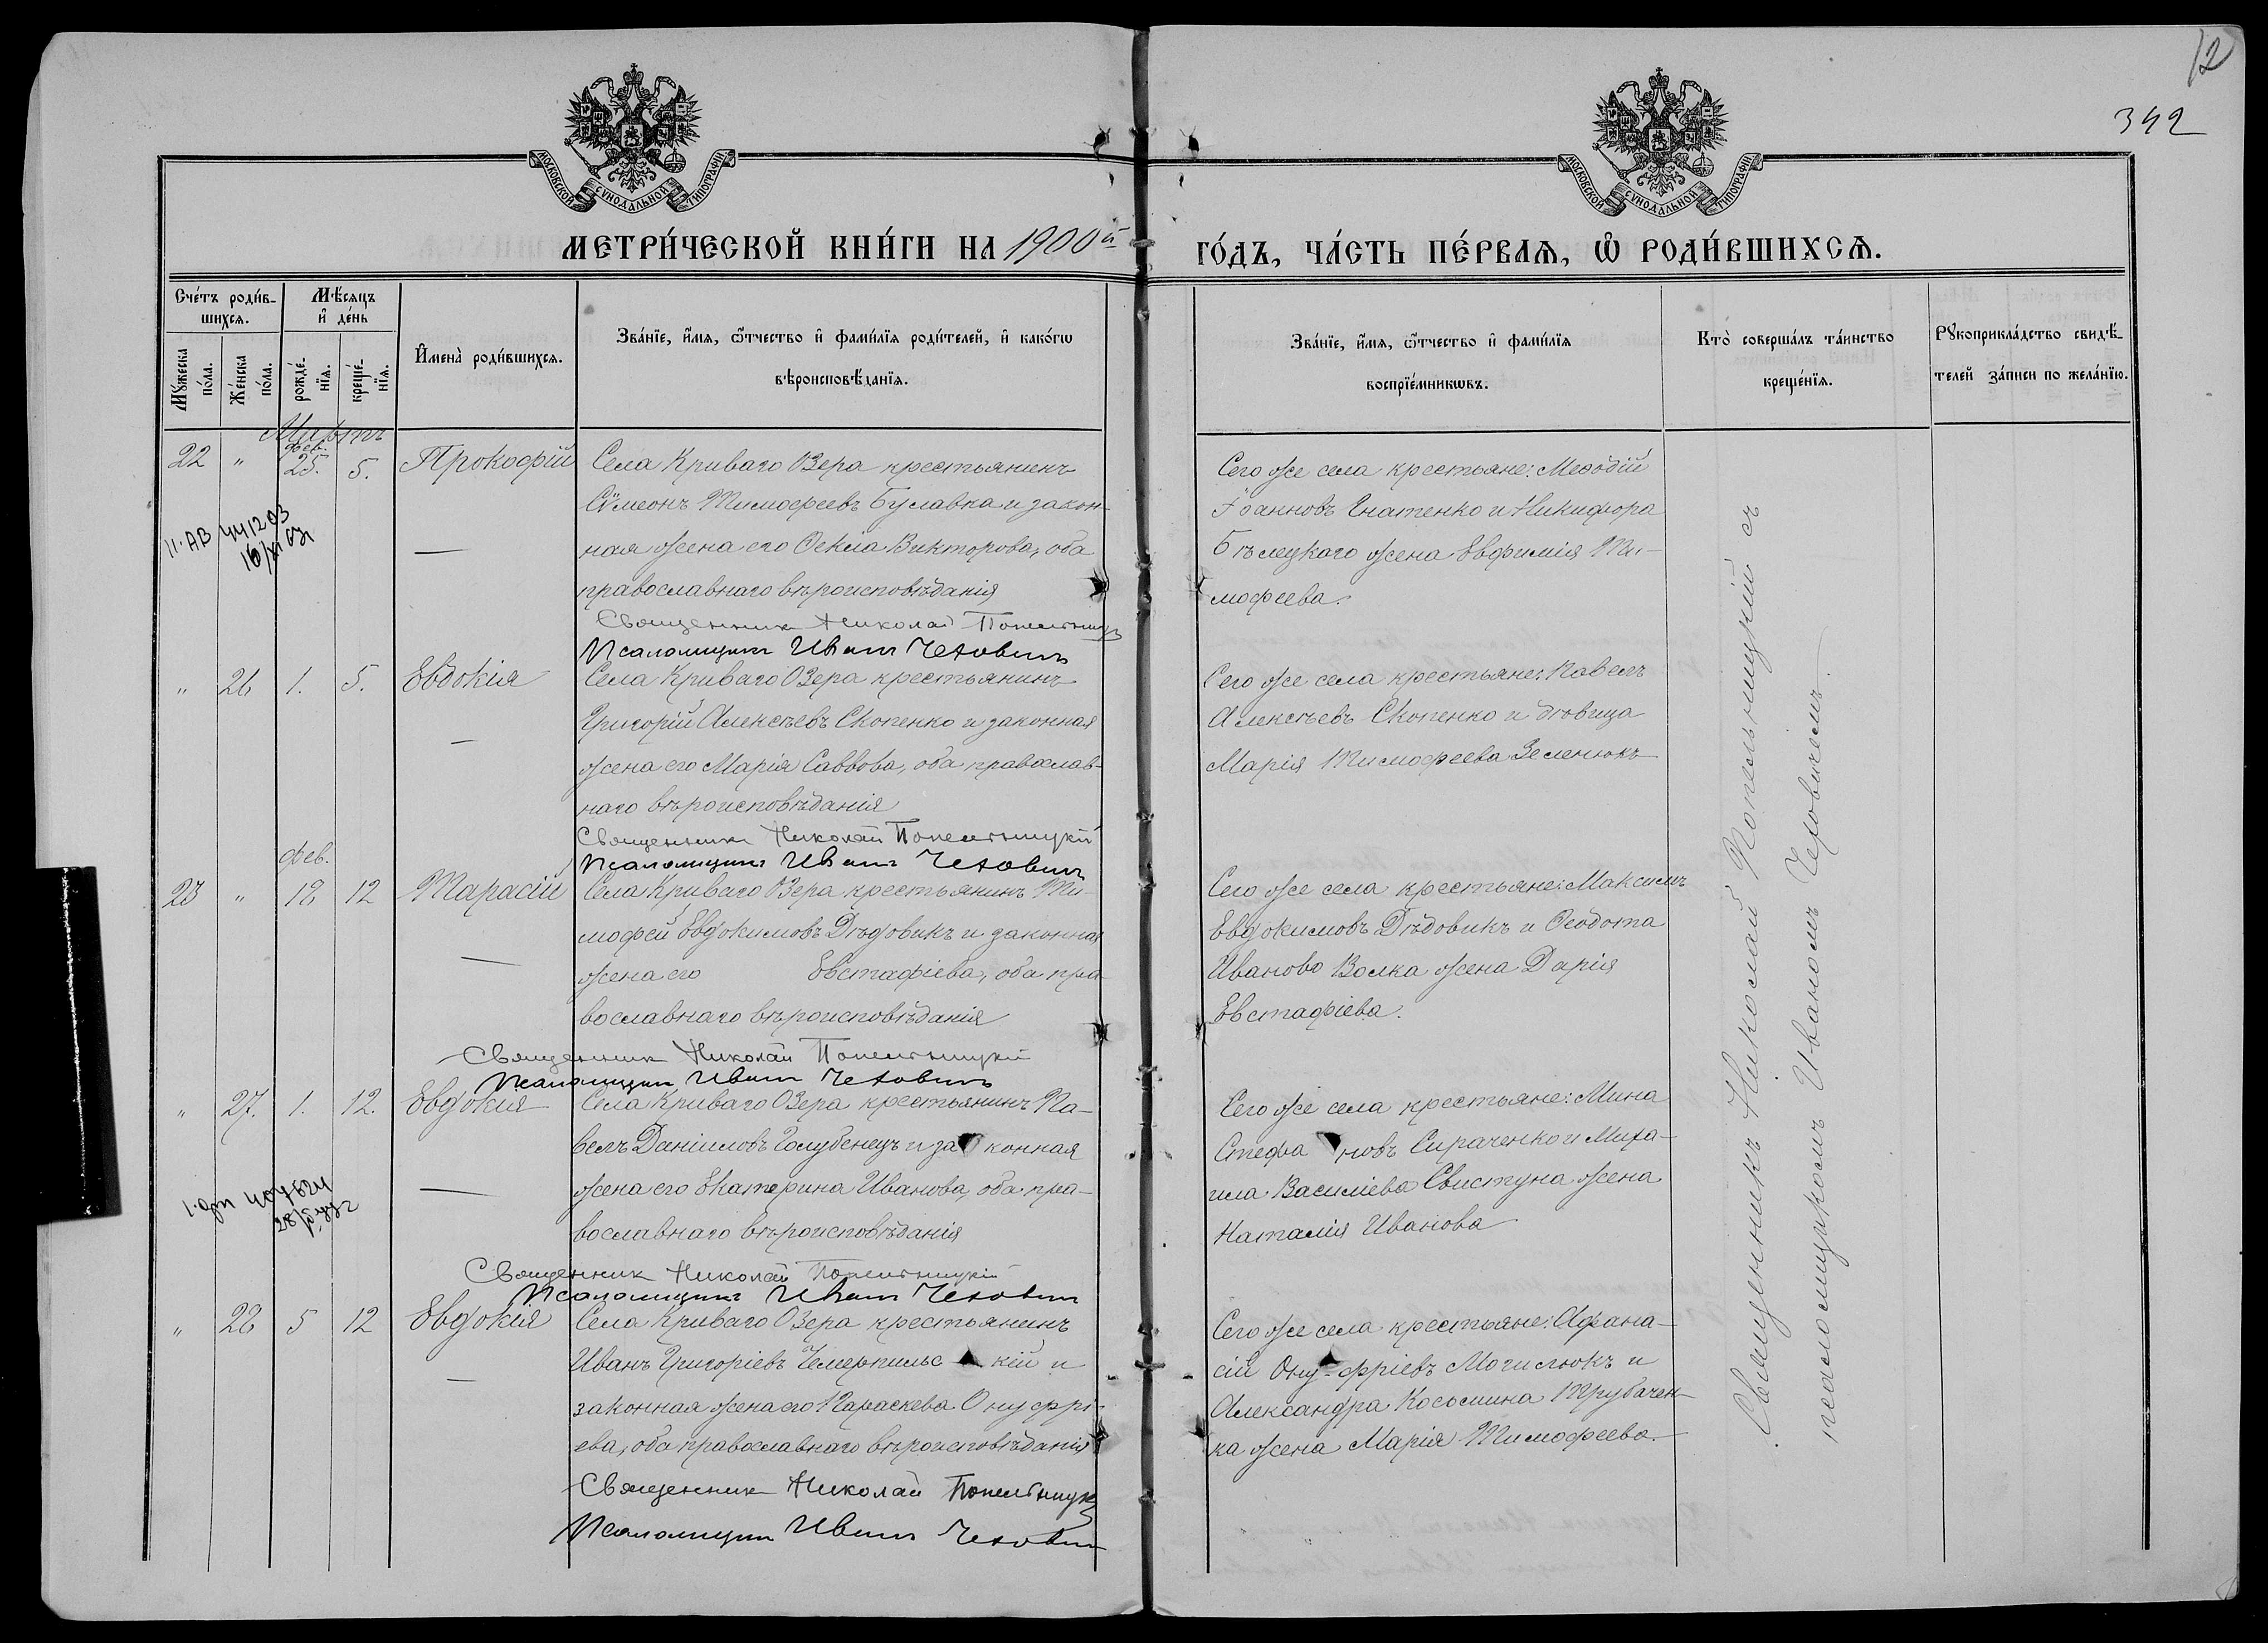 12
342
МОСКОВСКОЙ СѴНОДАЛЬНОЙ ТИПОГРАФІИ
МОСКОВСКОЙ СѴНОДАЛЬНОЙ ТИПОГРАФІИ
МЕТРИ́ЧЕСКОЙ КНИ́ГИ НА 1900й ГО́ДЪ, ЧА́СТЬ ПЕ́РВАѦ, Ѡ҆ РОДИ́ВШИХСѦ.
Сче́тъ роди́в-
шихсѧ.
Мѣ́сѧцъ
и҆ де́нь
Мꙋ́жеска
по́ла.
Же́нска
по́ла.
рожде́-
нїѧ.
креще́-
нїѧ.
И҆мена̀ роди́вшихсѧ.
Зва́нїе, и҆́мѧ, ѻ҆́тчество и҆ фами́лїѧ роди́телей, и҆ како́гѡ
вѣроисповѣ́данїѧ.
Зва́нїе, и҆́мѧ, ѻ҆́тчество и҆ фами́лїѧ
воспрїе́мникѡвъ.
Кто̀ соверша́лъ та́инство
креще́нїѧ.
Рꙋкоприкла́дство свидѣ́-
телей за́писи по жела́нїю.
Мартъ
22 " фев. 25. 5. Прокофій
Села Криваго Озера крестьянинъ
Сѵмеонъ Тимофеевъ Булавка и закон-
ная жена его Ѳекла Викторова, оба
православнаго вѣроисповѣданія
Священник Николай Попельницк
Псаломщикъ Иванъ Чехович
Сего же села крестьяне: Меѳодій
Іоанновъ Гнатенко и Никифора
Бѣлецкаго жена Евфимія Ти-
мофеева.
11. АВ 441203
16/XI 
" 26 1. 5. Евдокія
Села Криваго Озера крестьянинъ
Григорій Алексѣевъ Скопенко и законная
жена его Марія Саввова, оба православ-
наго вѣроисповѣданія
Священник Николай Попельницкій
Псаломщикъ Иванъ Чехович
Сего же села крестьяне: Павелъ
Алексѣевъ Скопенко и дѣвица
Марія Тимофеева Зеленюкъ
23 " фев. 18 12 Тарасій
Села Криваго Озера крестьянинъ Ти-
мофей Евдокимовъ Дѣдовикъ и законная
жена его Евстафіева, оба пра-
вославнаго вѣроисповѣданія
Священник Николай Попельницкій
Псаломщикъ Иванъ Чехович
Сего же села крестьяне: Максимъ
Евдокимовъ Дѣдовикъ и Ѳеодота
Иванова Волка жена Дарія
Евстафіева.
" 27. 1. 12. Евдокия
Села Криваго Озера крестьянинъ Па-
велъ Даніиловъ Голубенецъ и законная
жена его Екатерина Иванова, оба пра-
вославнаго вѣроисповѣданія
Священник Николай Попельницкій
Псаломщикъ Иванъ Чехович
Сего же села крестьяне: Мина
Стефановъ Сираченко и Миха-
ила Василіева Свистуна жена
Наталія Иванова
" 28 5 12 Евдокія
Села Криваго Озера крестьянинъ
Иванъ Григоріевъ Чемерпильскій и
законная жена его Параскева Онуфрі-
ева, оба православнаго вѣроисповѣданія
Священник Николай Попельницк
Псаломщикъ Иванъ Чехович
Сего же села крестьяне: Афана-
сій Онуфріевъ Могилюкъ и
Александра Косьмина Трубачен-
ка жена Марія Тимофеева.
Священникъ Николай Попельницкій съ
псаломщикомъ Иваномъ Чеховичемъ.